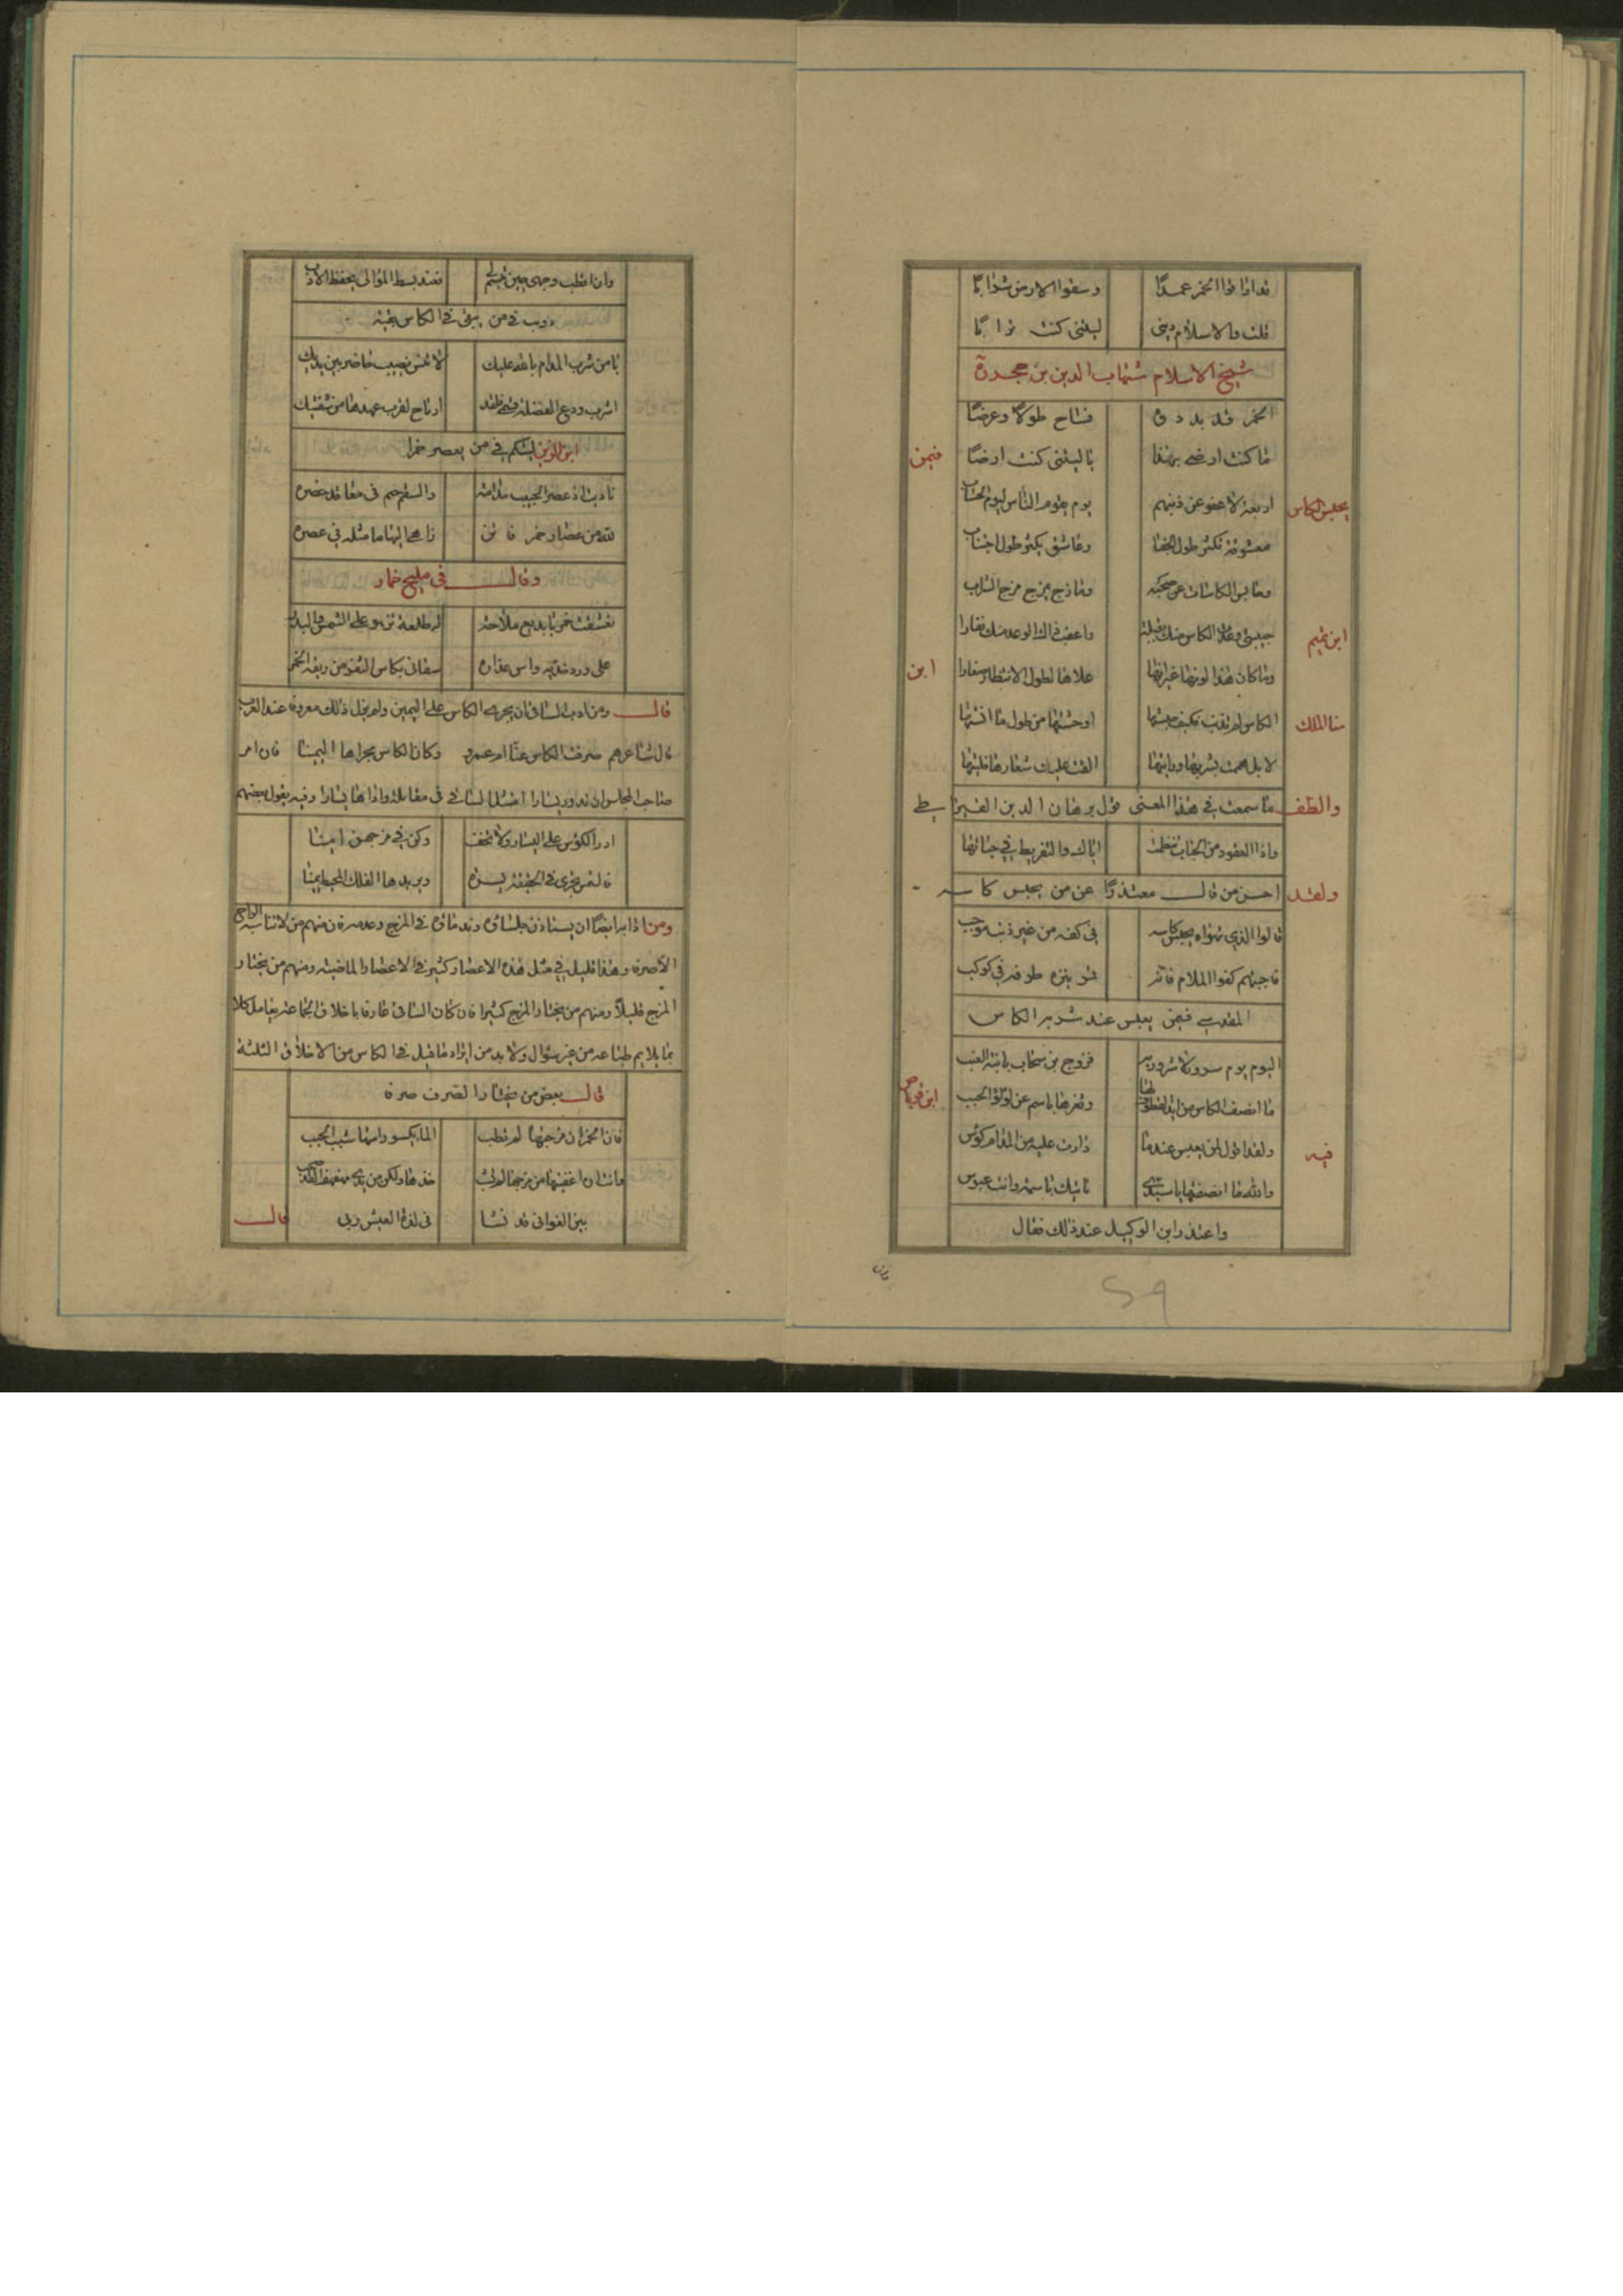 قد اذاقوا الخمر عمدًا وسقوا الارض شرابًا
قلت والاسلام ديني ليتني كنت ترابًا
شيخ الاسلام شهاب الدين بن حجر
الخمر قد بددوه فساح طولًا وعرضًا
ما كنت ارضى بهذا يا ليتني كنت ارضًا
فيمن
يحبس الكاس
اربعة لا عفو عن ذنبهم يوم يقوم الناس ليوم الحساب
معشوقة تكثر طول الجفا وعاشق يكثر طول اجتناب
وحابس الكاسات عن صحبه ومازج يمزج مزج الشراب
ابن تميم
حبيبي وعدت الكاس منك بقبلة واعقب ذاك الوعد منك نفارا
وما كان هذا لونها غير انها علاها لطول الانتظار صفارا
ابن
سنا الملك
الكاس لم تذنب فكيف حبستها اوحشتها من طول ما انستها
لا بل هممت بشربها ورايتها القت عليك شعارها فلبستها
والطف ما سمعت في هذا المعنى قول برهان الدين القيراطي
واذا العقود من الحباب تنظمت اياك والتفريط في حباتها
ولقد احسن من قال معتذرًا عن من يحبس كاسه
قالوا الذي تهواه يحبس كاسه في كفه من غير ذنب موجب
فاجبتهم كفوا الملام فانه قمر ينزه طرفه في كوكب
المقدسي فيمن يعبس عند شربه الكاس
اليوم يوم سرور لا شرور به فزوج بن سحاب بابنة العنب
ما انصف الكاس من ابدى القطوب لها وثغرها باسم عن لؤلؤ الحبب
ابن قرناص
فيه
ولقد اقول لمن يعبس عندما دارت عليه من المدام كؤس
والله ما انصفتها يا سيدي تاتيك باسمة وانت عبوس
واعتذر ابن الوكيل عند ذلك فقال
وان
59
وان اقطب وجهي حين تبسم لي فعند بسط الموالي يحفظ الادب
دوبيت في من يبقي في الكاس بقية
يا من شرب المدام بالله عليك لا تنس نصيب حاضر بين يديك
اشرب ودع الفضلة فهي فقد ارتاح لقرب عهدها من شفتيك
ابن الوزير اليشكم في من يعصر خمرا
ناديت اذ عصر الحبيب مدامة والسقم جم في معاقد خصره
لله من عصار خمر فاتن ناهيك يا ما مثله في عصره
وقال في مليح خمار
تعشقت خمريا بديع ملاحة له طلعة تزهو على الشمس والبدر
على ورد خديه واس عذاره سقاني بكاس الثغر من ريقه الخمر
قال ومن ادب الساقي ان يجري الكاس على اليمين ولم يزل ذلك معروفا عند العرب
قال شاعرهم صرفت الكاس عنا ام عمرو وكان الكاس مجراها اليمينا فان امر
صاحب المجلس ان تدور يسارا امتثل الساقي في مقابلته وادارها يسارا وفيه يقول بعضهم
ادر الكؤس على اليسار ولا تخف وكن في مزجهن امينا
فالشمس تجري في الحقيقة يسرة ويريدها الفلك المحيط يمينا
ومن ادابه ايضًا ان يستاذن جلساءه وندماءه في المزج وعدمه فان منهم من لا تناسبه الراح
الا صرفه وهذا قليل في مثل هذه الاعصار كثير في الاعصار الماضيه ومنهم من يختار
المزج قليلًا ومنهم من يختار المزج كثيرا فان كان الساقي عارفا باخلاق الجماعة يعامل كلا
بما يلايم طباعه من غير سؤال ولا بد من ايراد ما قيل في الكاس من الاخلاق الثلثة
قال بعض من يختارا لصرف صرفه
فان الخمر ان مزجتها لم تطب الما يكسو راسها شيب الحبب
خذها ولكن من يدي مهفهف
بين الغواني قد نشا في لذة العيش ربي
قال